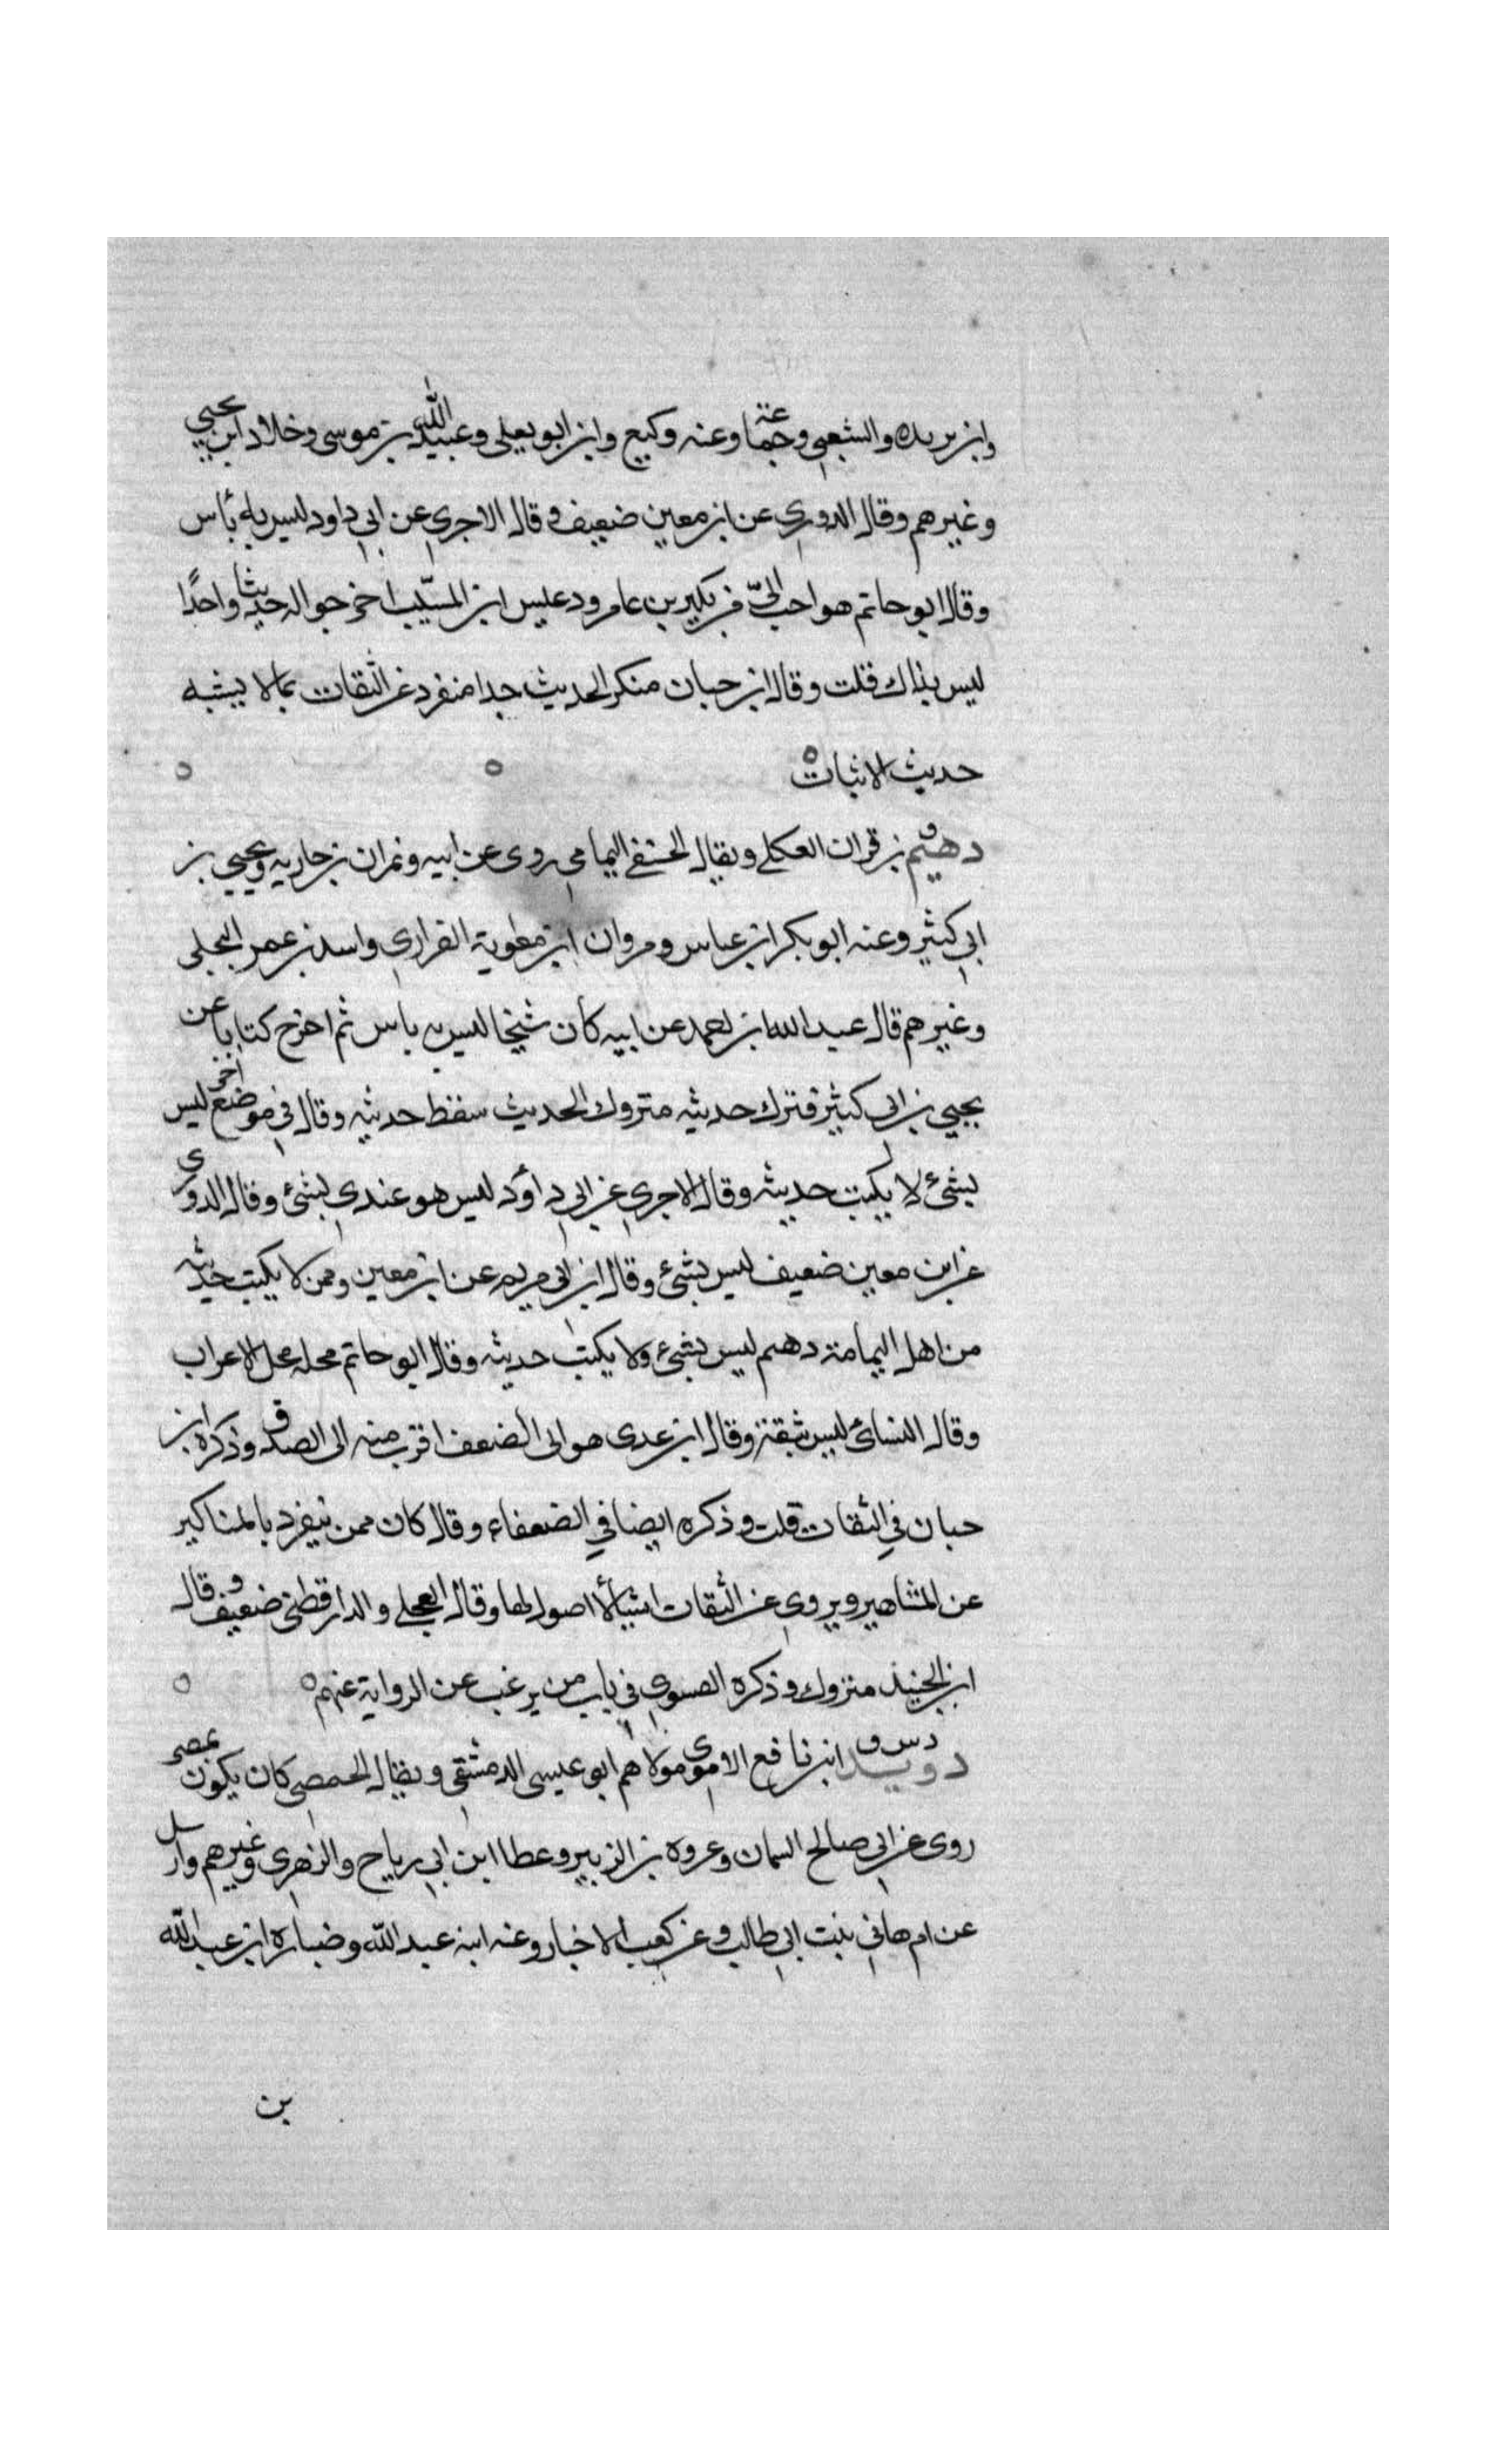 وابن بريده والشعبي وجماعة وعنه وكيع وابن ابو يعلى وعبيد الله بن موسى وخلاد ابن يحيى
وغيرهم وقال الدوري عن ابن معين ضعيف وقال الاجري عن ابي داود ليس به بأس
وقال ابو حاتم هو احب الىّ من بكير بن عامر وعيس ابن المسيّب اخرجوا له حديثا واحدًا
ليس بذاك قلت وقال ابن حبان منكر الحديث جدا منفرد عن الثقات بما لا يشبه
حديث الاثبات
ق
دهثم بن قران العكلي ويقال الحنفي اليمامي روى عن ابيه ونمران بن جاريه ويحيى بن
ابي كثير وعنه ابو بكر ابن عباس ومروان ابن معوية الفراري واسد بن عمر البجلي
وغيرهم قال عبد الله ابن احمد عن ابيه كان شيخا ليس به باس ثم اخرج كتابا عن
يحيى بن ابي كثير فترك حديثه متروك الحديث سقط حديثه وقال في موضع اخر ليس
بشئ لا يكتب حديثه وقال الاجري عن ابي داؤد ليس هو عندي بشئ وقال الدوري
عن ابن معين ضعيف ليس بشئ وقال ابن ابي مريم عن ابن معين وممن لا يكتب حديثه
من اهل اليمامة دهثم ليس بشئ ولا يكتب حديثه وقال ابو حاتم محله محل الاعراب
وقال النسائ ليس بثقة وقال ابن عدى هو الى الضعف اقرب منه الى الصدق وذكره ابن
حبان في الثقات قلت وذكره ايضا في الضعفاء وقال كان ممن ينفرد بالمناكير
عن المشاهير ويروي عن الثقات اشيأ لا اصول لها وقال العجلي والدارقطني ضعيف وقال
ابن الجنيد متروك وذكره الفسوي في باب من يرغب عن الرواية عنهم
د س ق
دويد ابن نافع الاموي مولاهم ابو عيسى الدمشقي ويقال الحمصي كان يكون بمصر
روى عن ابي صالح السمان وعروة بن الزبير وعطا ابن ابي رياح والزهري وغيرهم وارسل
عن ام هاني بنت ابي طالب وعن كعب الاخبار وعنه ابنه عبد الله وضباره ابن عبد الله
بن